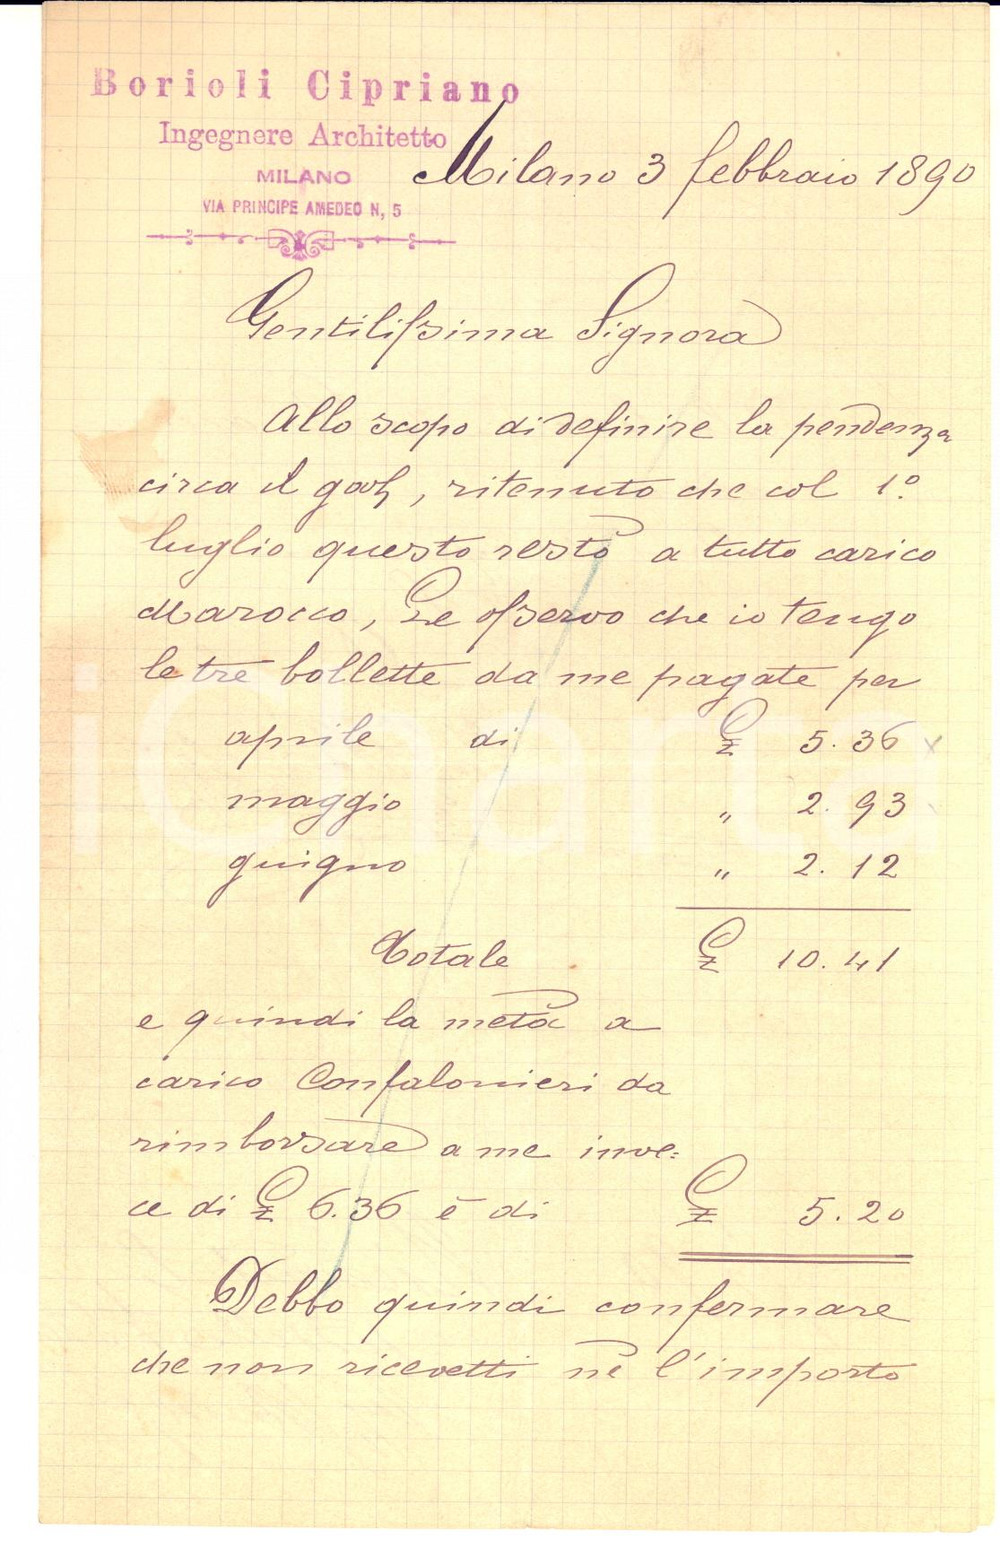 Borioli Cipriano
Ingegnere Architetto
MILANO
VIA PRINCIPE AMEDEO N, 5
Milano 3 febbraio 1890
Gentilissima Signora
Allo scopo di definire la pendenza
circa il gaz, ritenuto che col 1º
luglio questo restò a tutto carico
Marocco, Le osservo che io tengo
le tre bollette da me pagate per
aprile di £ 5.36
maggio " 2.93
giugno " 2.12
Totale £ 10.41
e quindi la metà a
carico Confalonieri da
rimborsare a me inve=
ce di £ 6.36 è di £ 5.20
Debbo quindi confermare
che non ricevetti nè l'importo
iCharta